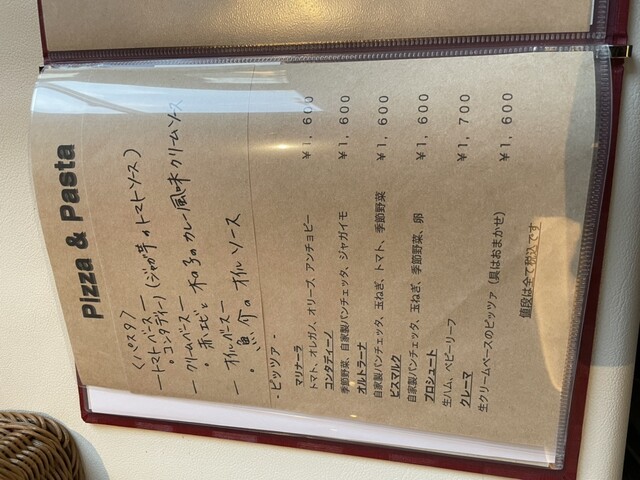 Pizza & Pasta
〈パスタ〉
― トマトベース ―
・コンタディーノ (ジャガ芋のトマトソース)
― クリームベース ―
・赤エビときの子のカレー風味クリームソース
― オイルベース ―
・魚介のオイルソース
- ピッツァ -
マリナーラ ¥1,600
トマト、オレガノ、オリーブ、アンチョビー
コンタディーノ ¥1,600
季節野菜、自家製パンチェッタ、ジャガイモ
オルトラーナ ¥1,600
自家製パンチェッタ、玉ねぎ、トマト、季節野菜
ビスマルク ¥1,600
自家製パンチェッタ、玉ねぎ、季節野菜、卵
プロシュート ¥1,700
生ハム、ベビーリーフ
クレーマ ¥1,600
生クリームベースのピッツァ (具はおまかせ)
値段は全て税込です